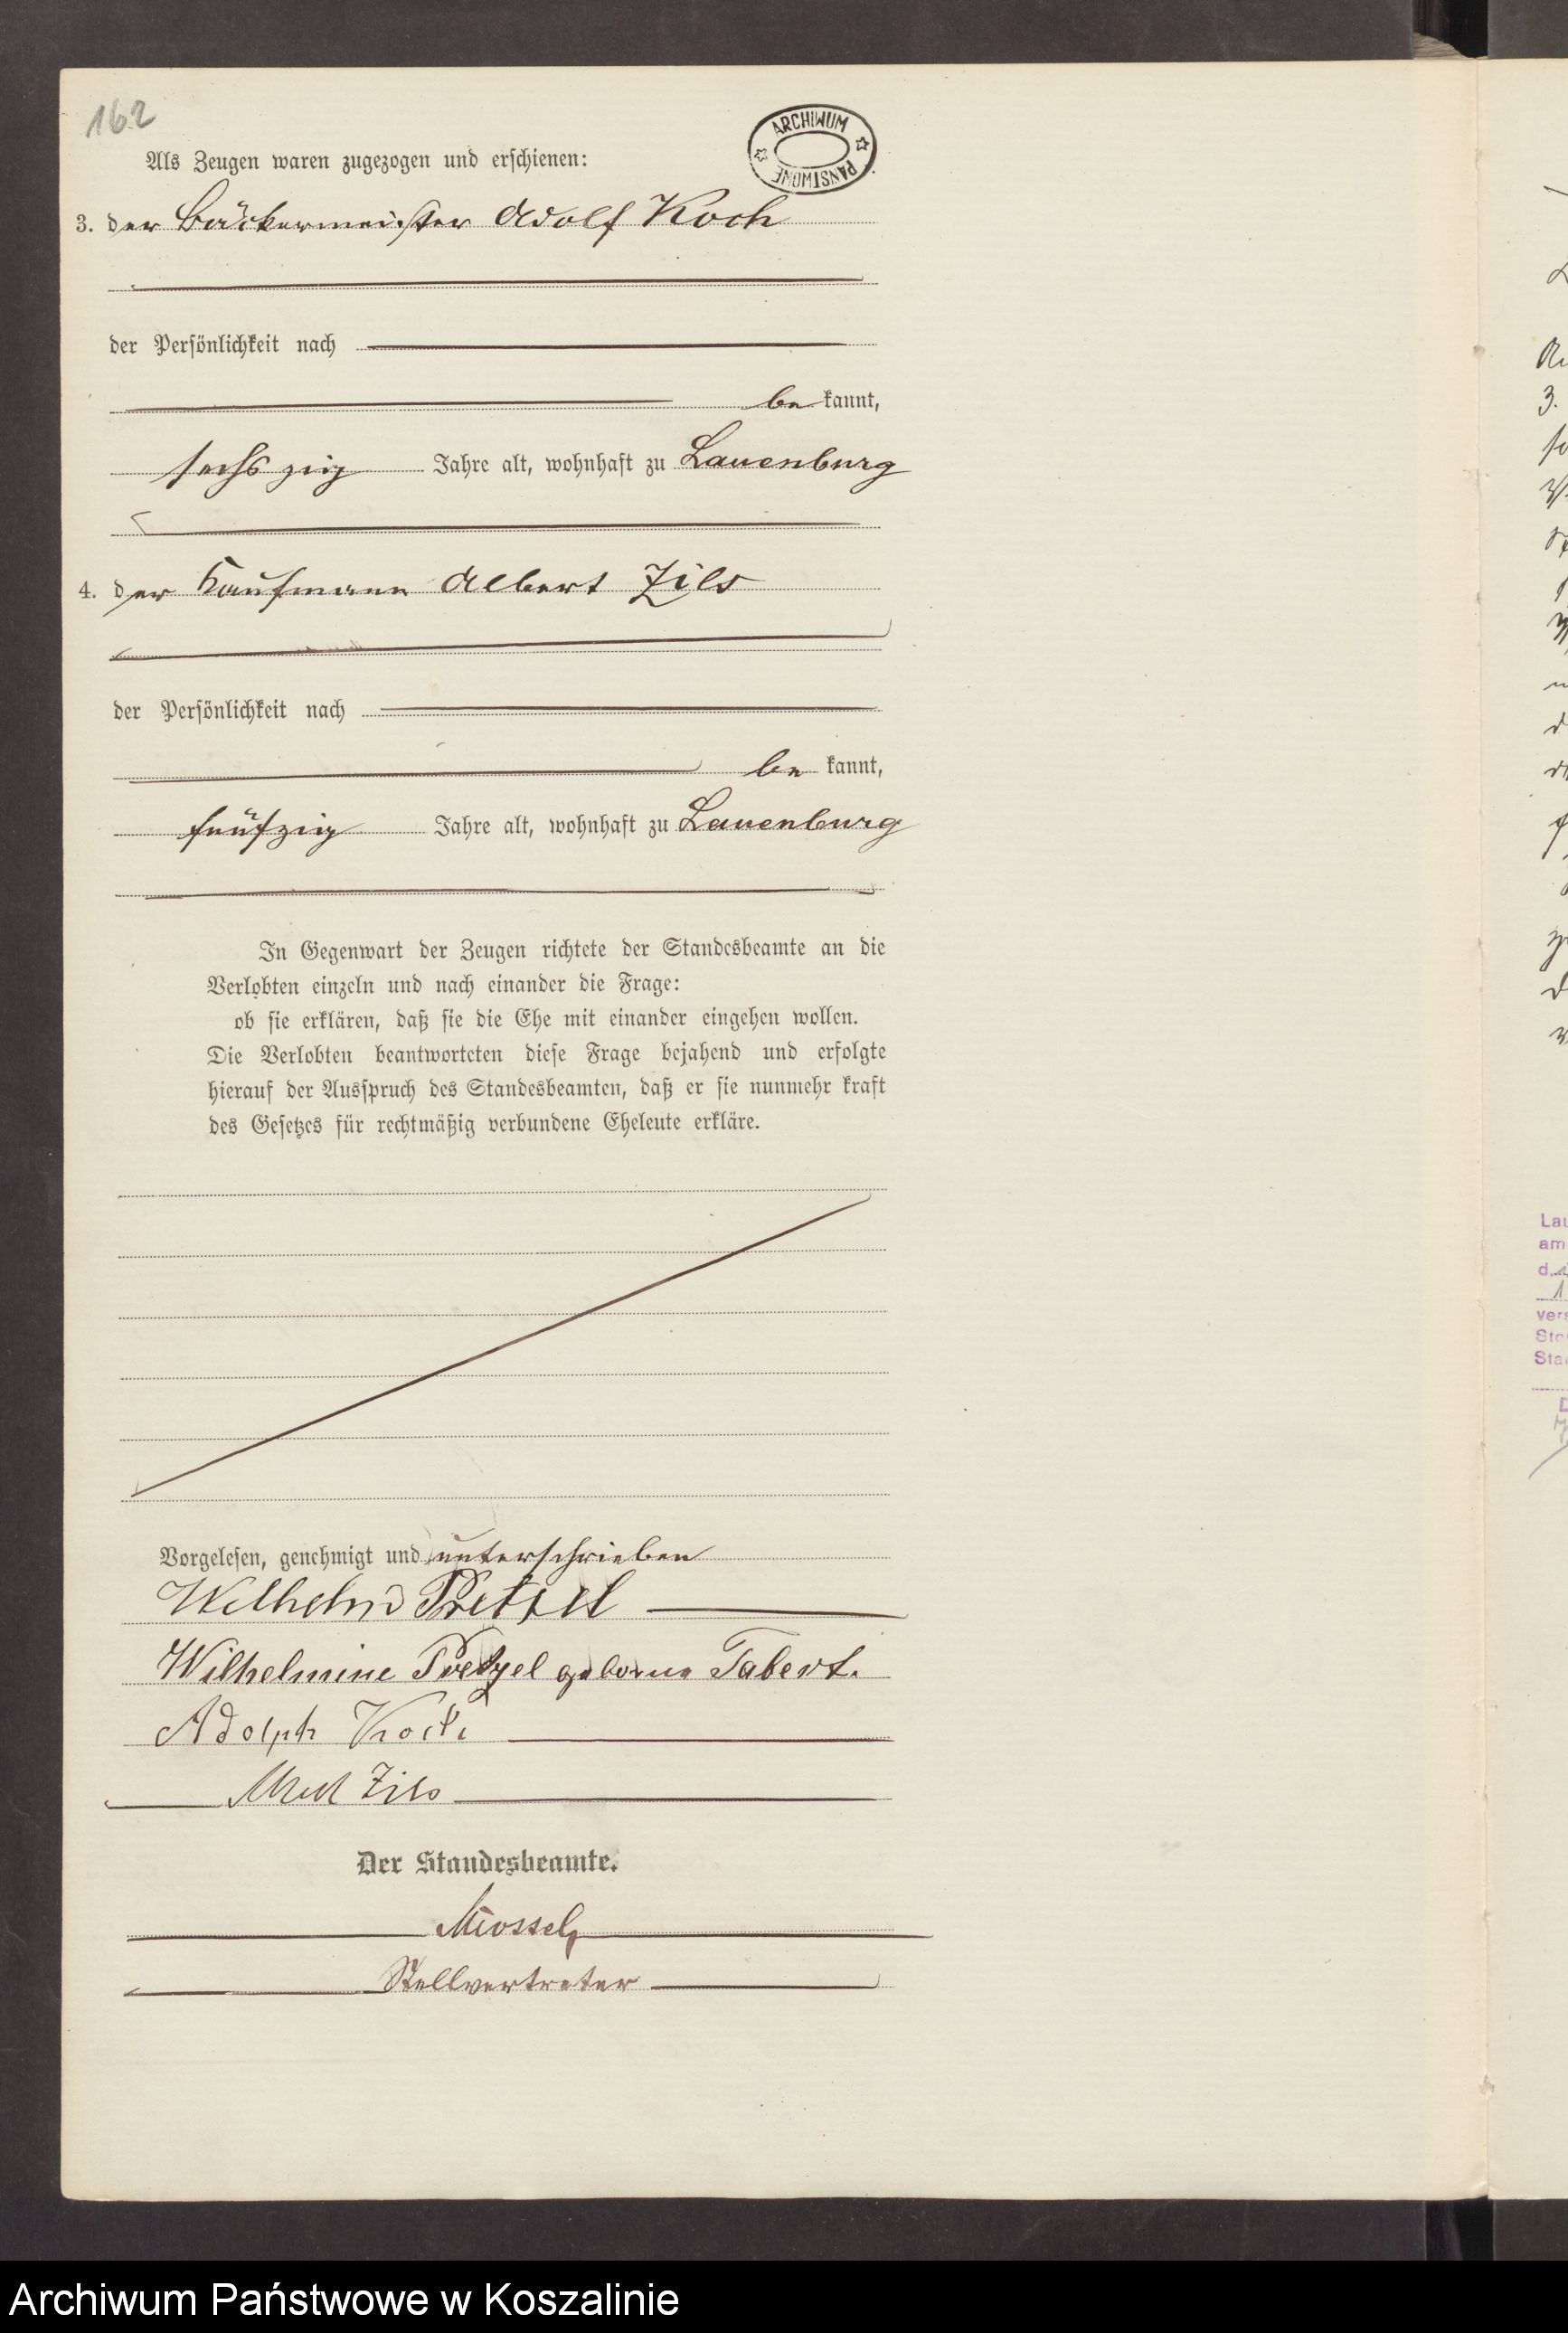 162
ARCHIWUM PAŃSTWOWE
Als Zeugen waren zugezogen und erschienen:
3. der Bäckermeister Adolf Koch
der Persönlichkeit nach
be kannt,
sechszig Jahre alt, wohnhaft zu Lauenburg
4. der Kaufmann Albert Zils
der Persönlichkeit nach
be kannt,
fünfzig Jahre alt, wohnhaft zu Lauenburg
In Gegenwart der Zeugen richtete der Standesbeamte an die
Verlobten einzeln und nach einander die Frage:
ob sie erklären, daß sie die Ehe mit einander eingehen wollen.
Die Verlobten beantworteten diese Frage bejahend und erfolgte
hierauf der Ausspruch des Standesbeamten, daß er sie nunmehr kraft
des Gesetzes für rechtmäßig verbundene Eheleute erkläre.
Vorgelesen, genehmigt und unterschrieben
Wilhelm Pretzel
Wilhelmine Pretzel geborne Tabert.
Adolph Koch
Zils
Der Standesbeamte.
Stellvertreter
Archiwum Państwowe w Koszalinie